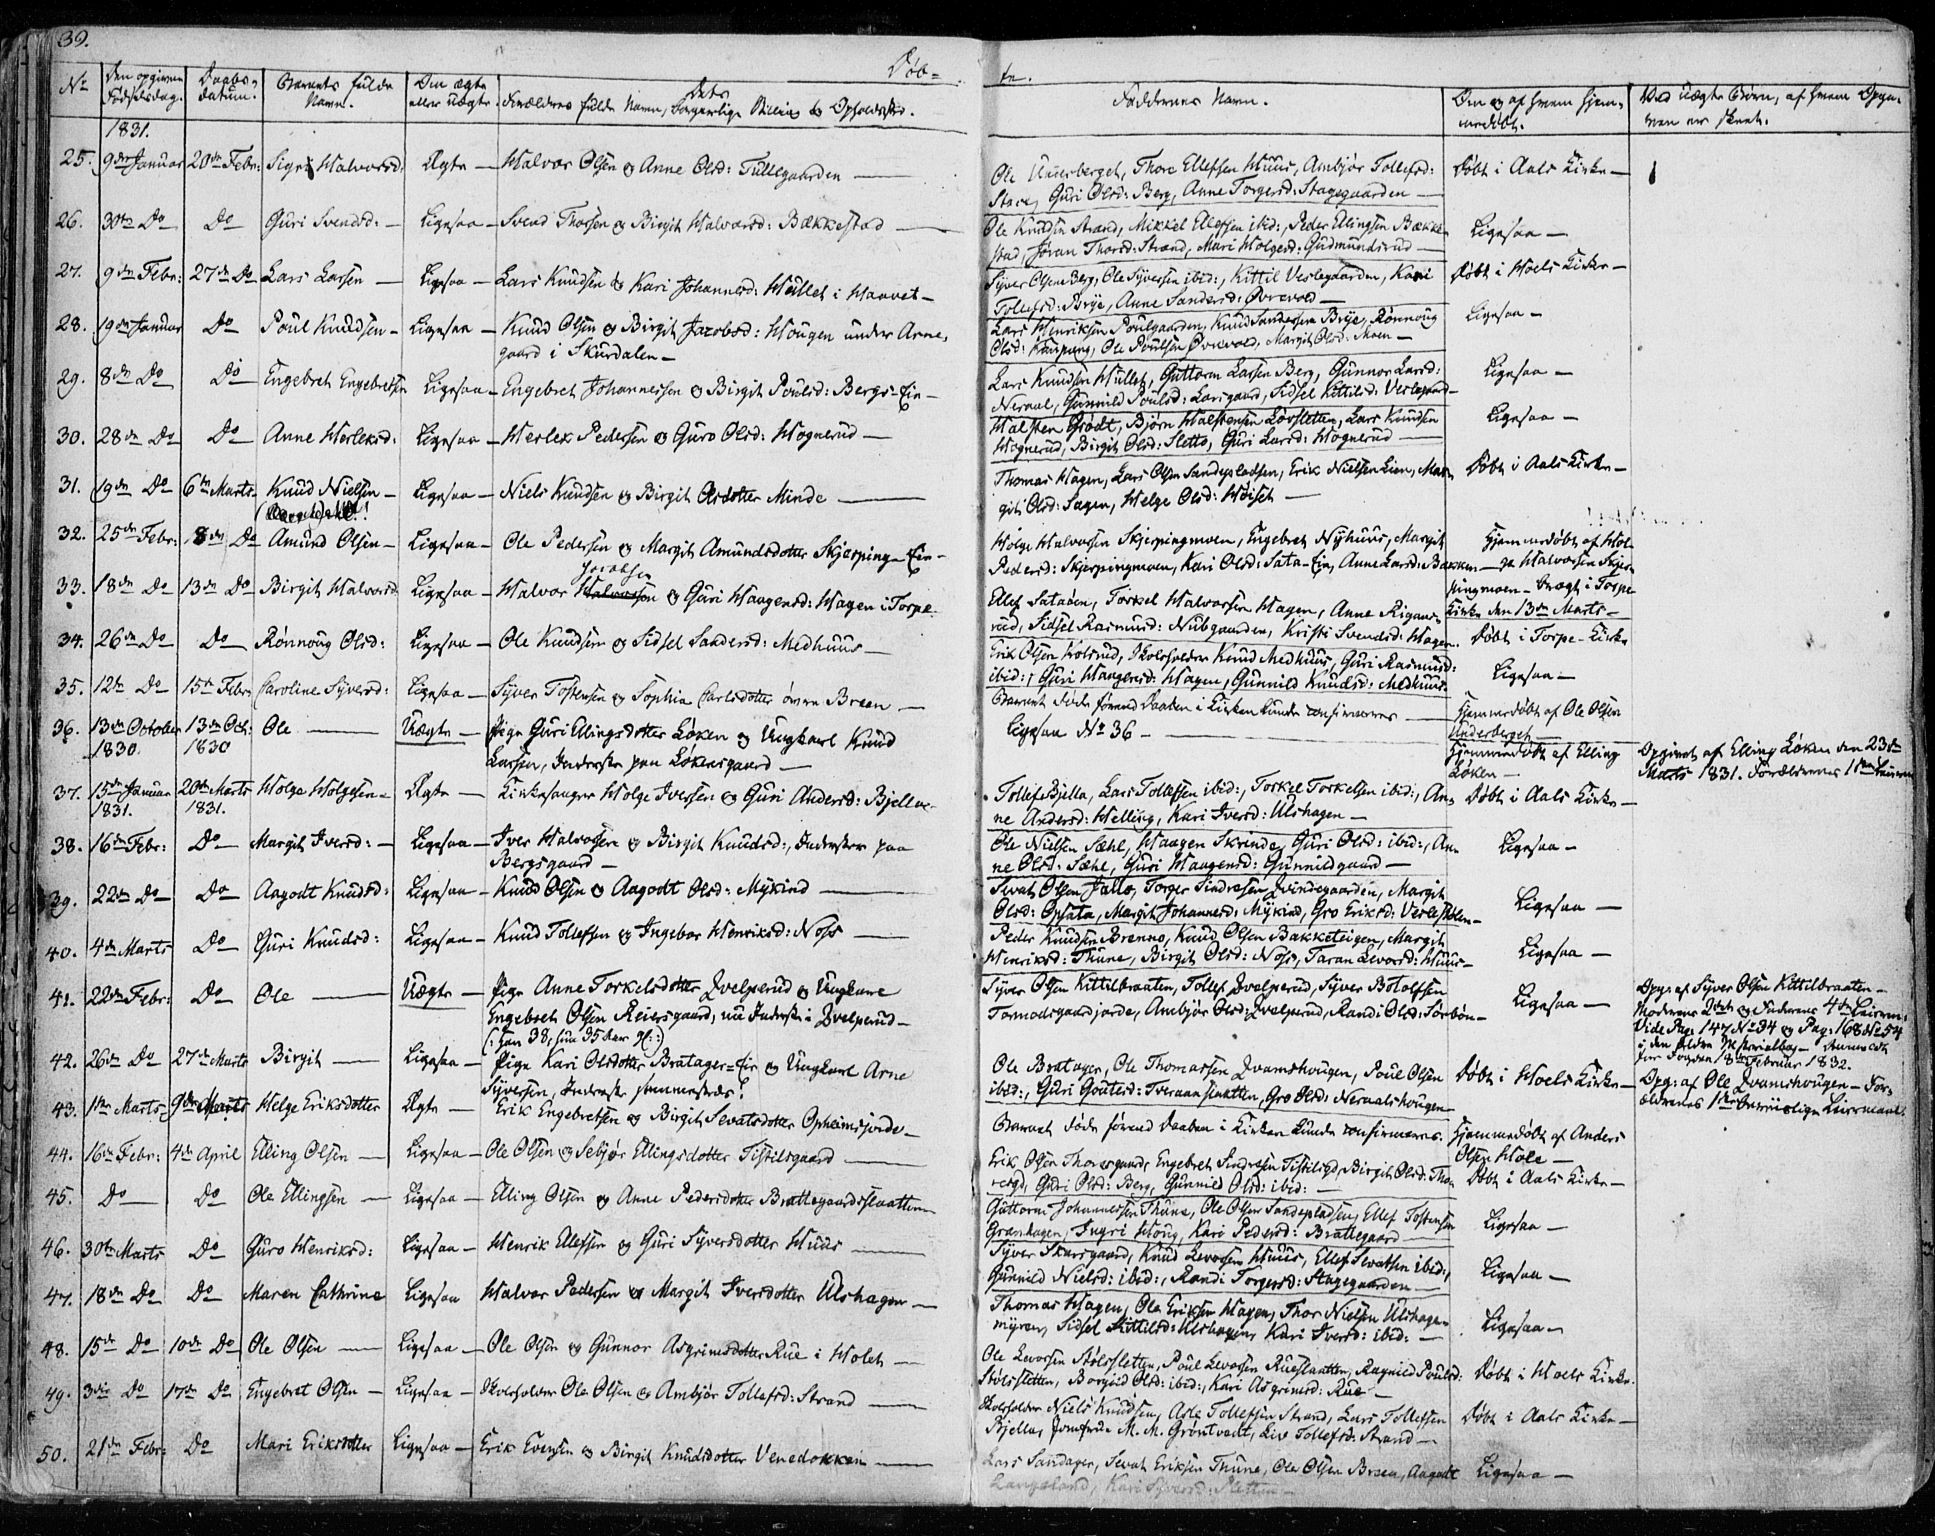 39.
Døb-
te.
No
Den opgivne Fødselsdag.
Daabs-datum.
Barnets fulde Navn.
Om ægte eller uægte.
Forældres fulde Navn, dets borgerlige Stilling & Opholdssted.
Faddernes Navn.
Om og af hvem hjemmedøbt.
Ved uægte Børn, af hvem Opgaven er skeet.
1831.
25. 9de Januar 20de Febr: Sigri Halvorsd: Ægte — Halvor Olsen & Anne Olsd: Tullegaarden —
Ole Underberget, Thore Ellefsen Huus, Ambjør Tollefsd:
Guri Olsd: Berg, Anne Torgersd: Stagegaarden —
Døbt i Aals Kirke —
26. 30te Do Do Guri Svendsd: — Ligesaa — Svend Thorsen & Birgit Halvorsd: Bækkestad —
Ole Knudsen Strand, Mikkel Ellefsen ibid:, Peder Ellingsen Bække-
stad, Jøran Thorsd: Strand, Mari Holgersd: Gudmundsrud —
Ligesaa —
27. 9de Febr: 27de Do Lars Larsen — Ligesaa — Lars Knudsen & Kari Johannesd: Hullet i Haavet —
Syver Olsen Berg, Ole Syversen ibid:, Kittil Veslegaarden, Kari
Tollefsd: Brye, Anne Sandersd: Øvrevold —
Døbt i Hoels Kirke —
28. 19de Januar Do Poul Knudsen — Ligesaa — Knud Olsen & Birgit Jacobsd: Hougen under Arne-
gaard i Skurdalen —
Lars Henriksen Poulgaarden, Knud Sandersen Brye, Rønnoug
Olsd: Ole Poulsen Øvrevold, Margit Olsd: Moen —
Ligesaa —
29. 8de Do Do Engebret Engebretsen Ligesaa — Engebret Johannessen & Birgit Poulsd: Bergs-Eie —
Lars Knudsen Hullet, Guttorm Larsen Berg, Gunnor Larsd:
Neraal, Gunnild Poulsd: Larsgaard, Sidsel Kittilsd: Veslegaard —
Ligesaa —
30. 28de Do Do Anne Herleksd: Ligesaa — Herlek Pedersen & Guro Olsd: Hognerud —
Halsten Grødt, Bjørn Halstensen Løvsletten, Lars Knudsen
Hognerud, Birgit Olsd: Sletto, Guri Larsd: Hognerud —
Ligesaa —
31. 19de Do 6te Marts Knud Nielsen — Ligesaa — Niels Knudsen & Birgit Olsdotter Minde —
Thomas Hagen, Lars Olsen Sandepladsen, Erik Nielsen Lien, Mar-
git Olsd: Sagen, Helge Olsd: Høiset —
Døbt i Aals Kirke —
32. 25de Febr: 8de Do Amund Olsen — Ligesaa — Ole Pedersen & Margit Amundsdotter Skjerping-Eie —
Holge Halvorsen Skjerpingmoen, Engebret Nyhuus, Margit
Pedersd: Skjerpingmoen, Kari Olsd: Sata-Eie, Anne Larsd: Bakken —
Hjemmedøbt af Hol-
ge Halvorsen Skjer-
pingmoen — bragt i Torpe
Kirke den 13de Marts —
33. 18de Do 13de Do Birgit Halvorsd: Ligesaa — Halvor Halvorsen Jacobsen & Guri Haagensd: Hagen i Torpe.
Ellef Sataøen, Torkel Halvorsen Hagen, Anne
rud, Sidsel Rasmusd: Nubgaarden, Kristi Svendsd: Hagen.
Døbt i Torpe-Kirke
34. 26de Do Do Rønnoug Olsd: Ligesaa — Ole Knudsen & Sidsel Sandersd: Medhuus —
Erik Olsen Holsrud, Skoleholder Knud Medhuus, Guri Rasmusd:
ibid:, Guri Haagensd: Hagen, Gunnild Knudsd: Medhuus.
Ligesaa —
35. 12te Do 15de Febr: Caroline Syversd: Ligesaa — Syver Tostensen & Sophia Carlsdotter øvre Breen —
Barnet døde førend Daaben i Kirken kunde confirmeres —
Hjemmedøbt af Ole Olsen
Underberget —
36. 13de October 1830. 13de Oct: 1830 Ole — Uægte — Pige Guri Ellingsdotter Løken & Ungkarl Knud
Larsen, Inderster paa Løkensgaard —
Ligesaa No 36 —
Hjemmedøbt af Elling
Løken —
Opgivet af Elling Løken den 23de
Marts 1831. Forældrenes 1ste Leierm.
37. 15de Januar 1831. 20de Marts 1831. Holge Holgesen — Ægte — Kirkesanger Holge Iversen & Guri Andersd: Bjella —
Tollef Bjella, Lars Tollefsen ibid:, Torkel Torkelsen ibid:, An-
ne Andersd: Helling, Kari Iversd: Ulshagen —
Døbt i Aals Kirke —
38. 16de Febr: Do Margit Iversd: — Ligesaa — Iver Halvorsen & Birgit Knudsd:, Inderster paa
Bergsgaard —
Ole Nielsen Sæhl, Haagen Skrinde, Guri Olsd: ibid:, An-
ne Olsd: Sæhl, Guri Haagensd: Gunnildgaard —
Ligesaa —
39. 22de Do Do Aagodt Knudsd: Ligesaa — Knud Olsen & Aagodt Olsd: Mykind —
Sevat Olsen Jallo, Torger Sindresen Qvindegaarden, Margit
Olsd: Opsata, Margit Johannesd: Mykind, Gro Eriksd: Vesle
Ligesaa —
40. 4de Marts Do Guri Knudsd: Ligesaa — Knud Tollefsen & Ingebor Henriksd: Noss —
Peder Knudsen Brenno, Knud Olsen Bakketeigen, Margit
Henriksd: Thune, Birgit Olsd: Noss, Taran Levorsd: Huus —
Ligesaa —
41. 22de Febr: Do Ole — Uægte — Pige Anne Torkelsdotter Qvelprud & Ungkarl
Engebret Olsen Reiersgaard, nu Inderst i Qvelprud —
(: han 38, hun 35 Aar gl: :)
Syver Olsen Kittilbraaten, Tollef Qvelprud, Syver Botolfsen
Tormodsgaardjorde, Ambjør Olsd: Qvelprud, Randi Olsd: Sørbøn —
Ligesaa —
Opg: af Syver Olsen Kittilbraaten —
Moderens 2det & Faderens 4de Leierm:
Vide Pag: 147 No 34 & Pag: 168 No 54
i den ældre Ministerialbog —
for Fogden 18de Februar 1832.
42. 26de Do 27de Marts Birgit — Ligesaa — Pige Kari Olsdotter Bratager-Eie & Ungkarl Arne
Syversen, Inderster sammesteds!
Ole Bratager, Ole Thomassen Qvamshougen, Poul Olsen
ibid:, Guri Goutesd: Gro Olsd: Neraalshougen
Døbt i Hoels Kirke —
Opg: af Ole Qvamshougen — For-
ældrenes 1ste Leiermaal.
43. 1ste Marts 9de Marts Helge Eriksdotter Ægte — Erik Engebretsen & Birgit Sevatsdotter Opheimsjorde —
Barnet døde førend Daaben i Kirken kunde confirmeres.
Hjemmedøbt af Anders
Olsen Hole —
44. 16de Febr: 4de April Elling Olsen — Ligesaa — Ole Olsen & Sebjør Ellingsdotter Tistilsgaard —
Erik Olsen Thoresgaard, Engebret Sindresen Tistilsgd, Birgit Olsd: Tho-
resgd, Guri Olsd: Berg, Gunnild Olsd: ibid: —
Døbt i Aals Kirke —
45. Do Do Ole Ellingsen — Ligesaa — Elling Olsen & Anne Pedersdotter Brattegaardsslaatten
Guttorm Johannessen Thune, Ole Olsen Sandepladsen, Ellef Tostensen
Granhagen, Ingri Houg, Kari Pedersd: Brattegaard —
Ligesaa —
46. 30te Marts Do Guro Henriksd: Ligesaa — Henrik Ellefsen & Guri Syversdotter Huus —
Syver Skarsgaard, Knud Levorsen Huus, Ellef Sevatsen ibid:,
Gunnild Nielsd: ibid:, Randi Torgersd: Stagegaarden —
Ligesaa —
47. 18de Do Do Maren Cathrine Ligesaa Halvor Pedersen & Margit Iversdotter Ulshagen —
Thomas Hagen, Ole Eriksen Hagen, Thor Nielsen Ulshagen
myren, Sidsel Kittilsd: Ulshagen, Kari Iversd: ibid: —
Ligesaa —
48. 15de Do 10de Do Ole Olsen — Ligesaa — Ole Olsen & Gunnor Asgrimsdotter Rue i Holet —
Ole Levorsen Stølssletten, Poul Levorsen Rueslaatten, Ragnild Poulsd:
Stølssletten, Borgild Olsd: ibid:, Kari Asgrimsd: Rue —
Døbt i Hoels Kirke.
49. 3die Do 17de Do Engebret Olsen — Ligesaa — Skoleholder Ole Olsen & Ambjør Tollefsd: Strand —
Skoleholder Niels Knudsen, Asle Tollefsen Strand, Lars Tollefsen
Bjella, Jomfrue M. M. Grøntvedt, Liv Tollefsd: Strand —
Døbt i Aals Kirke —
50. 21de Febr: Do Mari Eriksdotter Ligesaa — Erik Evensen & Birgit Knudsdotter Venedokken —
Lars Sandager, Sevat Eriksen Thune, Ole Olsen Breen, Aagodt
Langeland, Kari Syversd: Sletten —
Ligesaa —